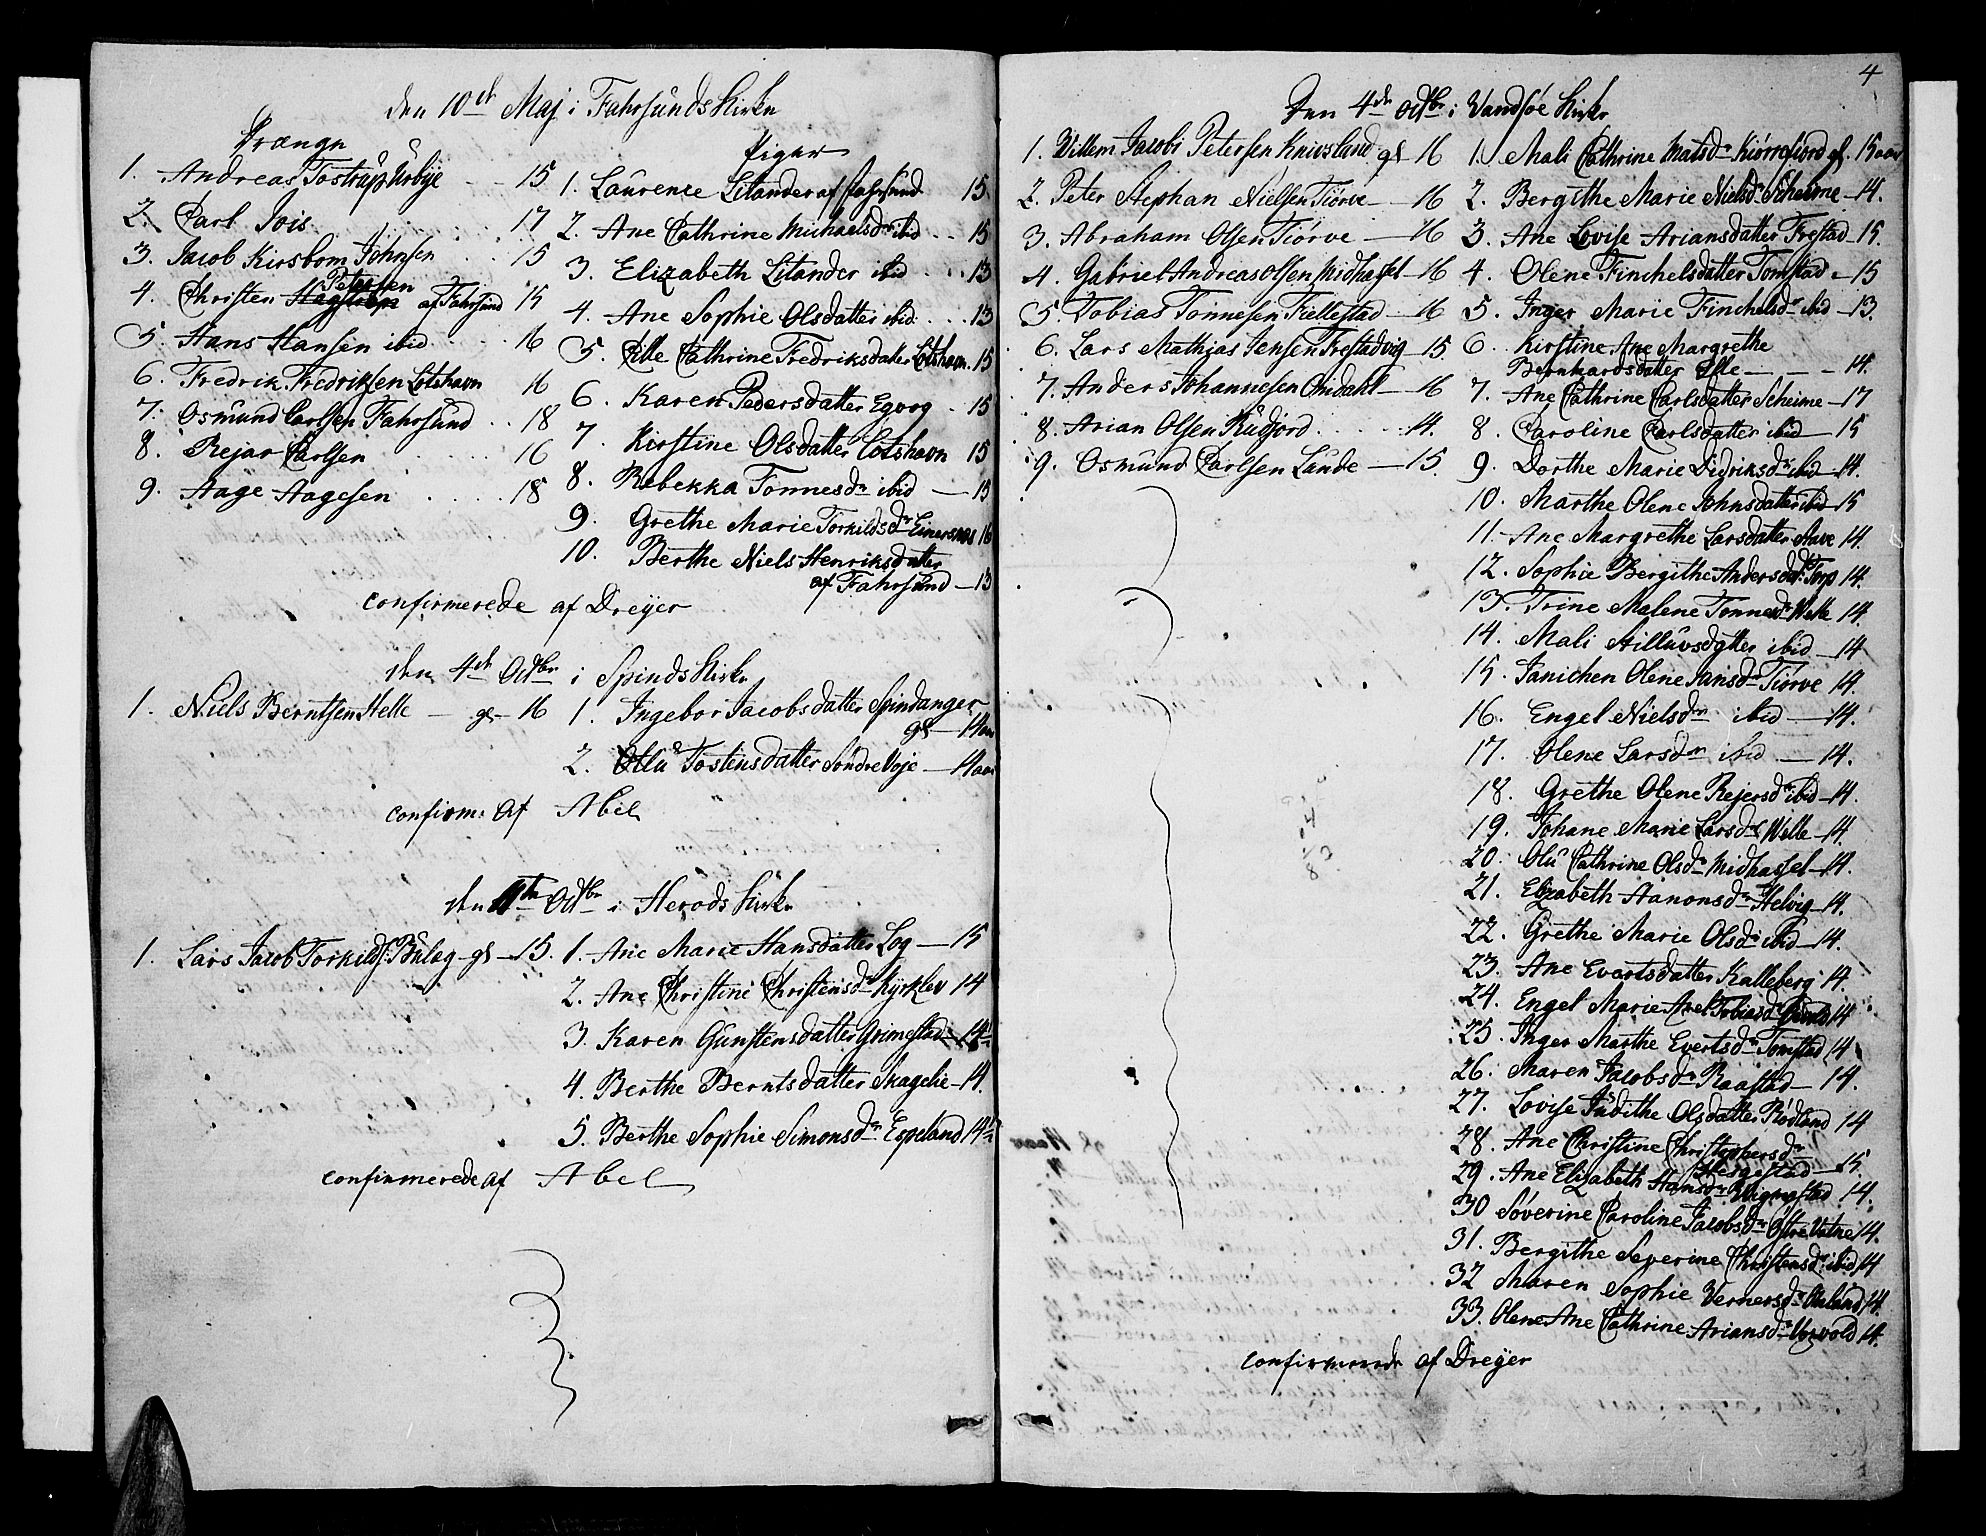 den 10de Maj i Fahrsunds Kirke
Drænge
1. Andreas Tostrup Urbye - - 15
2. Carl Jois 17
3. Jacob Kirsbom Johnsen 15
Petersen
4. Christen af Fahrsund 15
5. Hans Hansen ibid 16
6. Fredrik Fredriksen Lotshavn 16
7. Osmund Carlsen Fahrsund 18
8. Rejar Carlsen 16
9. Aage Aagesen 18
Piger
1. Laurence Litander af Fahrsund 15
2. Ane Cathrine Michaelsdr ibid 15
3. Elizabeth Litander ibid 13
4. Ane Sophie Olsdatter ibid 13
5. Cille Cathrine Fredriksdatter Lotshavn 15
6. Karen Pedersdatter Egorg 15
7. Kirstine Olsdatter Lotshavn 15
8. Rebekka Tonnesdr ibid — 15
9. Grethe Marie Torkildsdr Einersnes 16
10. Berthe Niels Henriksdatter
af Fahrsund — 13
confirmerede af Dreÿer
den 4de Octbr i Spinds Kirke
1. Niels Berntsen Helle — gl — 16
1. Ingebor Jacobsdatter Spindanger
gl — 14 aar
2. Ollu Tostensdatter Søndre Voje — 14 aar
confirm: af Abel
den 11te Octbr i Herods Kirke
1. Lars Jacob Torkilds: Bulæg gl — 15.
1. Ane Marie Hansdatter Log — 15
2. Ane Christine Christensdr Kyrklev 14
3. Karen Gunstensdatter Grimestad 14
4. Berthe Berntsdatter Skagelie — 14.
5. Berthe Sophie Simonsdr Egeland 14
confirmerede af Abel
4
Den 4de Octbr i Vandsøe Kirke
1. Willem Jacobi Petersen Knivsland gl 16
2. Peter Stephan Nielsen Tiørve — 16
3. Abraham Olsen Tiørve — 16
4. Gabriel Andreas Olsen Midhassel — 16
5. Tobias Tonnesen Fiellestad — 16
6. Lars Mathias Jensen Frestadvig — 15.
7. Anders Johannesen Omdahl — 16
8. Arian Olsen Rudjord 14.
9. Osmund Carlsen Lunde — 15.
1. Mali Cathrine Matsdr Kiørrefiord gl. 15 aar
2. Bergithe Marie Nielsdr Scheime — 14.
3. Ane Lovise Ariansdatter Frestad — 15.
4. Olene Finchelsdatter Tomstad — 15
5. Inger Marie Finchelsdr ibid — 13.
6. Kirstine Ane Margrethe
Bernhardsdatter Elle — — - 14.
7. Ane Cathrine Carlsdatter Scheime — 17
8. Caroline Carlsdatter ibid — 15
9. Dorthe Marie Didriksdr ibid — 14.
10. Marthe Olene Johnsdatter ibid — 15
11. Ane Margrethe Larsdatter Stave 14.
12. Sophie Bergithe Andersdatr Torp 14.
13. Trine Malene Tonnesdr Welle 14.
14. Mali Stilluvsdatter ibid — 14
15. Janichen Olene Jansdr Tiørve 14.
16. Engel Nielsdr ibid — 14.
17. Olene Larsdr ibid — 14.
18. Grethe Olene Rejersdr ibid — 14.
19. Johane Marie Larsdr Welle — 14.
20. Olu Cathrine Olsdr Midhassel — 14.
21. Elizabeth Hanonsdr Helvig — 14.
22. Grethe Marie Olsdr ibid — 14.
23. Ane Evertsdatter Kalleberg 14.
24. Engel Marie Axel Tobiasd 14
25. Inger Marthe Evertsdr Tomstad 14
26. Maren Jacobsdr Raastad — 14.
27. Lovise Judithe Olsdatter Rødland 14
28. Ane Christine Christophersdr
Hergestad — 15
29. Ane Elizabeth Hansdr Wigmostad 14.
30 Søverine Caroline Jacobsdr Østre Vatne 14.
31. Bergithe Severine Christensdr ibid 14
32 Maren Sophie Vernersdr Ouland 14.
33. Olene Ane Cathrine Ariansdr Vorvold 14.
confirmerede af Dreÿer